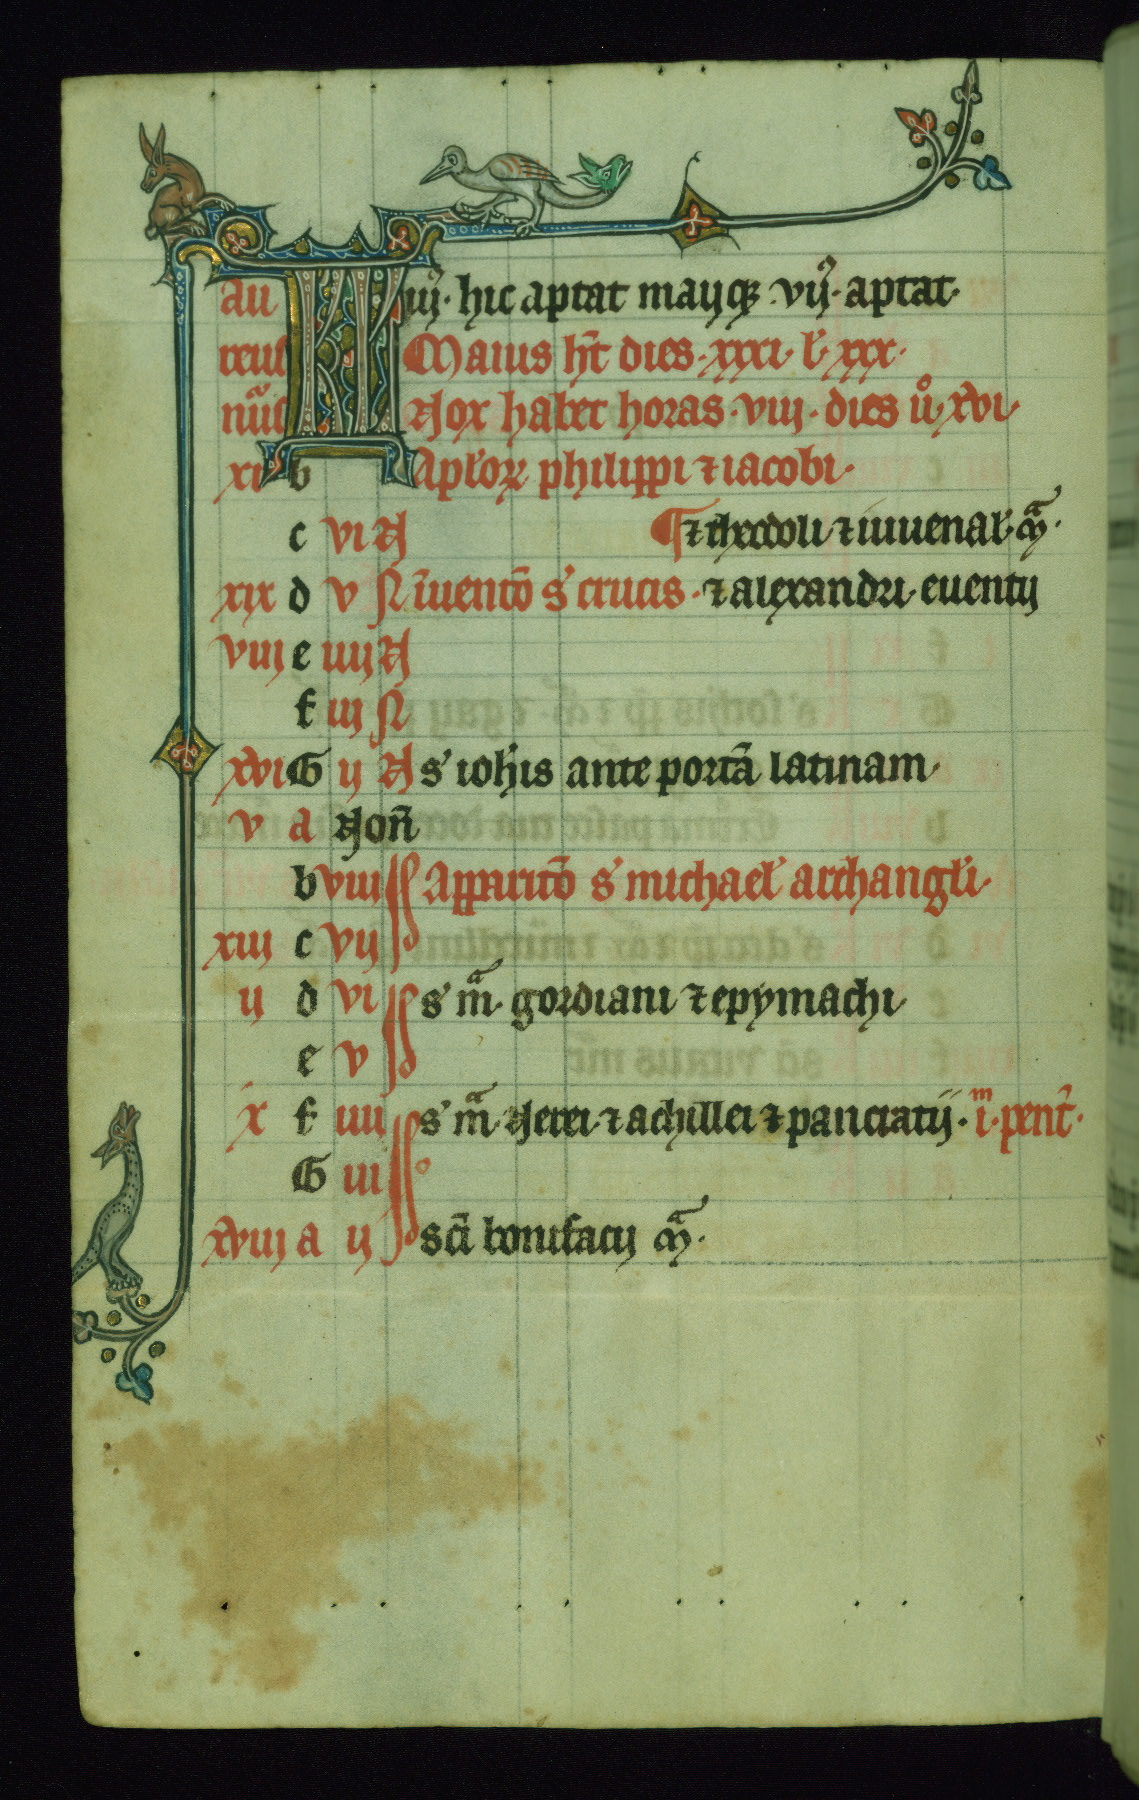 au iij · hic aptat maijqz · vij · aptat ·
reus Maius ht̄ dies · xxxi · l' · xxx ·
nūs Nox habet horas · viij · dies ů xvi ·
xi b Apl'oꝝ philippi ⁊ iacobi ·
c vi N ¶ ⁊ theodoli ⁊ iuuenal' · m̄ ·
xix d v N īuentō s' crucis · ⁊ alexandri · euentij
viij e iiij N
f iij N
xvi G ij N s' ioh'is ante portā latinam ·
v a Non̄
b viij Id Apparitō s' michael' archangl'i ·
xiij c vij Id
ij d vi Id s' m̄ · gordiani ⁊ epymachi ·
e v Id
x f iiij Id s' m̄ · Nerei · ⁊ achillei ⁊ pancratij · i m · pent̄ ·
G iii Id
xviij a ij Id sc̄i bonifacij m̄ ·